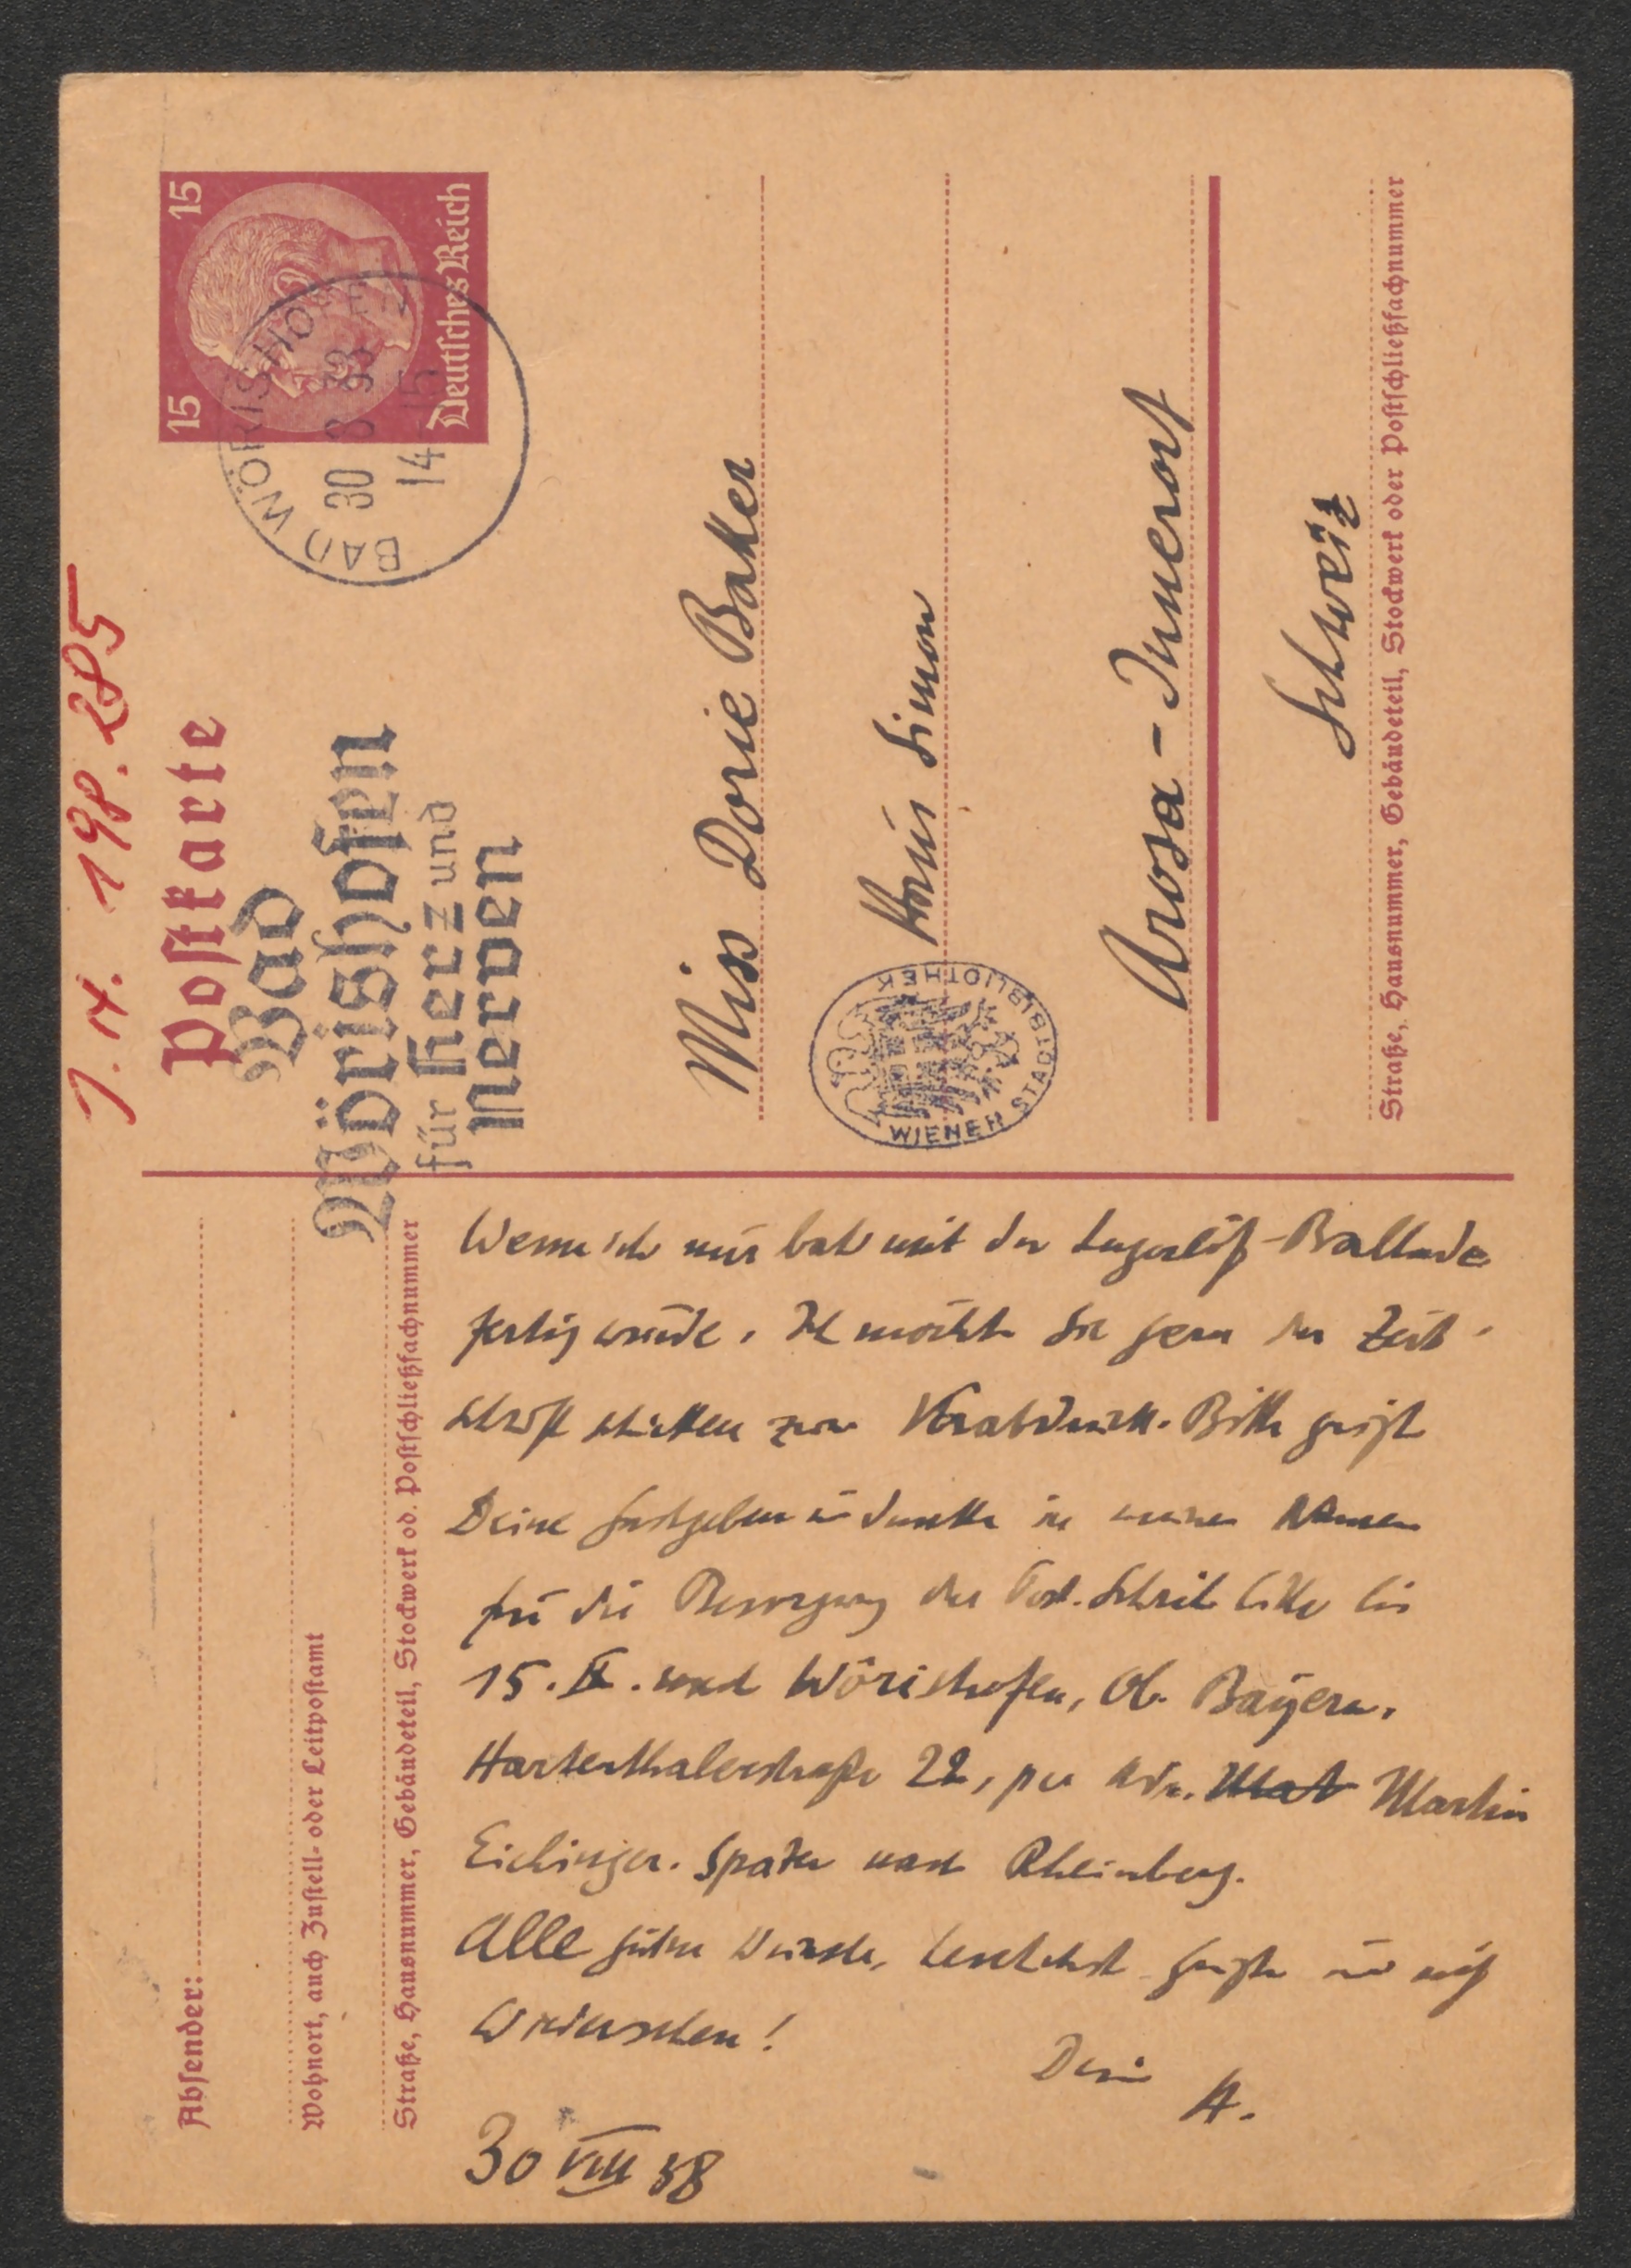 J. N. 198.285
Postkarte
15 15
Deutsches Reich
BAD WÖRISHOFEN
30 8 38
14-15
Bad
Wörishofen
für Herz und
Nerven
Miss Dorie Baker
Haus Simon
Arosa - Innerarosa
Schweiz
WIENER STADTBIBLIOTHEK
Straße, Hausnummer, Gebäudeteil, Stockwerk oder Postschließfachnummer
Absender:
Wohnort, auch Zustell- oder Leitpostamt
Straße, Hausnummer, Gebäudeteil, Stockwerk od. Postschließfachnummer
Wenn ich nur bald mit der -Ballade
fertig würde. Ich möchte sie gern der Zeit-
schrift schicken zum Vorabdruck. Bitte grüße
Deine Gastgeber u danke in meinem Namen
für die Besorgung der Schreib bitte bis
15. IX. nach Wörishofen, Ob. Bayern,
Hartenthalerstraße 22, per Adr. Martin
Eichinger. Später nach Rheinberg.
Alle guten Wünsche, herzlichst grüße
Dein
A.
30 VIII 38